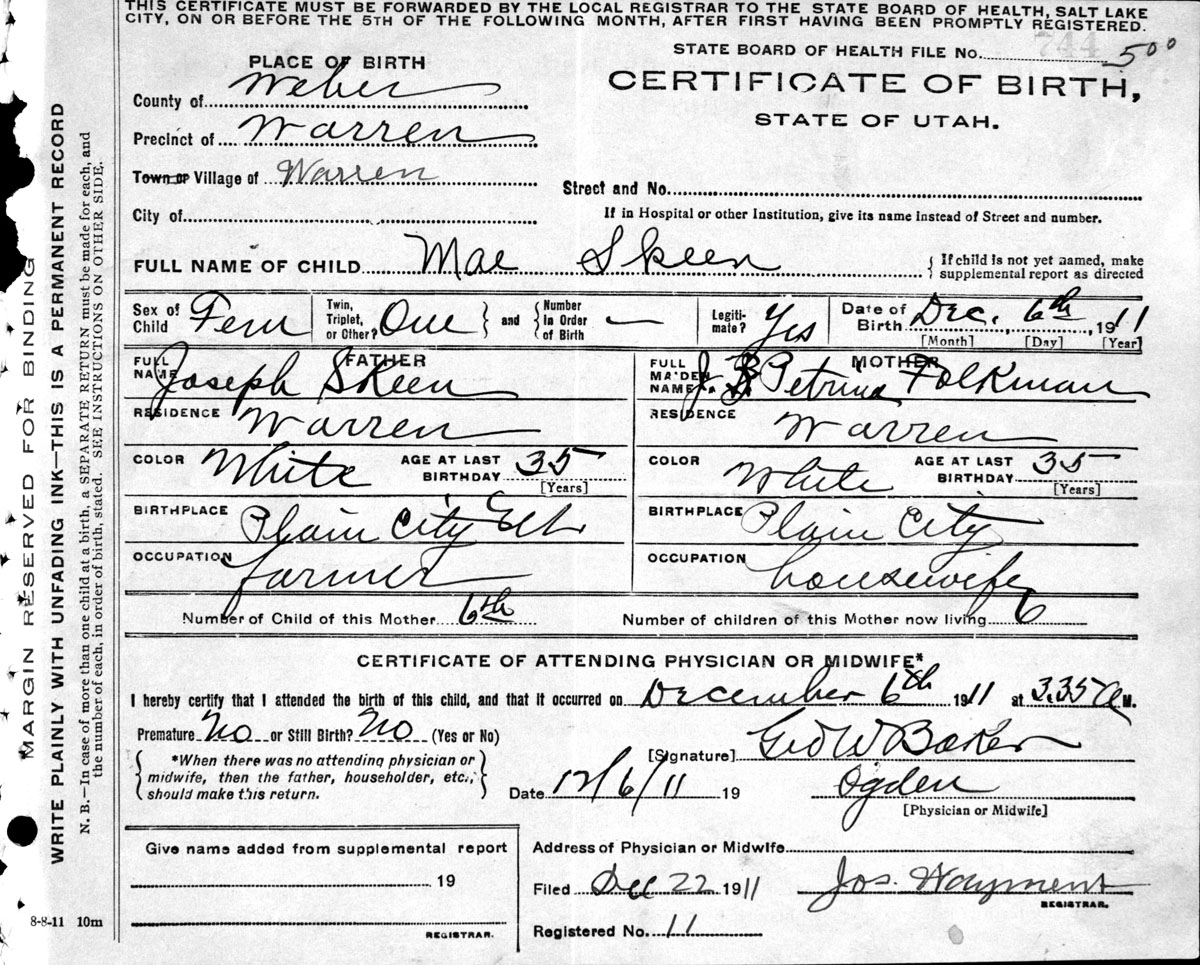 THIS CERTIFICATE MUST BE FORWARDED BY THE LOCAL REGISTRAR TO THE STATE BOARD OF HEALTH, SALT LAKE
CITY, ON OR BEFORE THE 5TH OF THE FOLLOWING MONTH, AFTER FIRST HAVING BEEN PROMPTLY REGISTERED.
STATE BOARD OF HEALTH FILE No. 744 500
PLACE OF BIRTH
CERTIFICATE OF BIRTH,
STATE OF UTAH.
County of Weber
Precinct of Warren
Town or Village of Warren
Street and No.
City of
If in Hospital or other Institution, give its name instead of Street and number.
FULL NAME OF CHILD Mae Skeen
{If child is not yet named, make
supplemental report as directed
Sex of Child Fem
Twin, Triplet, or Other? One } and { Number In Order of Birth —
Legiti-mate? Yes
Date of Birth Dec. 6th, 1911
[Month] [Day] [Year]
FATHER
FULL NAME Joseph Skeen
RESIDENCE Warren
COLOR White AGE AT LAST BIRTHDAY 35
[Years]
BIRTHPLACE Plain City
OCCUPATION farmer
MOTHER
FULL MAIDEN NAME Petrina Folkman
RESIDENCE Warren
COLOR White AGE AT LAST BIRTHDAY 35
[Years]
BIRTHPLACE Plain City
OCCUPATION housewife
Number of Child of this Mother 6th Number of children of this Mother now living 6
CERTIFICATE OF ATTENDING PHYSICIAN OR MIDWIFE*
I hereby certify that I attended the birth of this child, and that it occurred on December 6th 1911 at 3.35 a M.
Premature No or Still Birth? No (Yes or No)
[Signature] Geo W Baker
*When there was no attending physician or
midwife, then the father, householder, etc.,
should make this return.
Date 12/6/11 19 Ogden
[Physician or Midwife]
Give name added from supplemental report
19
REGISTRAR.
Address of Physician or Midwife
Filed Dec 22 1911 Jos. Wayment
REGISTRAR.
Registered No. 11
8-8-11 10m
MARGIN RESERVED FOR BINDING
WRITE PLAINLY WITH UNFADING INK—THIS IS A PERMANENT RECORD
N. B.—In case of more than one child at a birth, a SEPARATE RETURN must be made for each, and
the number of each, in order of birth, stated. SEE INSTRUCTIONS ON OTHER SIDE.